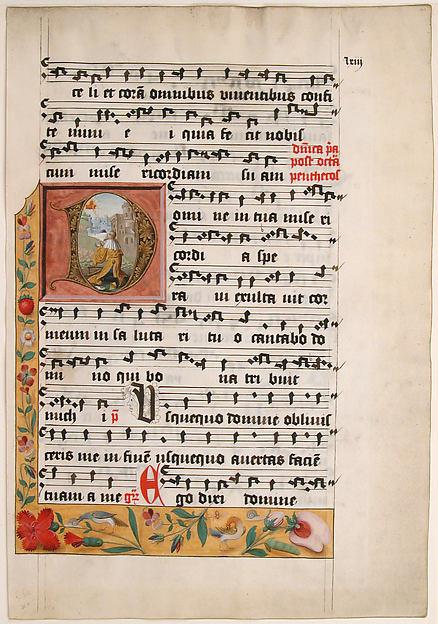 lxiii
ce li et corā omnibus viventibus confi
te mini e i quia fe cit nobis
dñica p̄a
cum mise ricordiam su am
post octā
penthecos
Domi ne in tua mise ri
cordi a spe
ra ui exulta uit cor
meum in sa luta ri tu o cantabo do
mi no qui bo na tri buit
mich i p̄ Vsquequo domine oblivis
ceris me in finē usquequo avertas faciē
tuam a me gr̄ Ego dixi domine